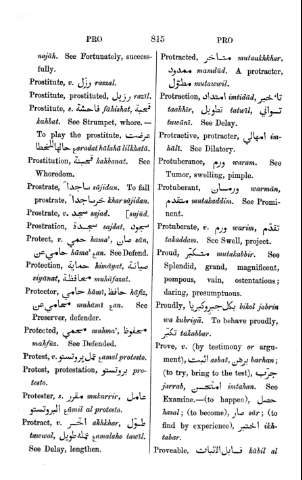 PRO 815 PRO
najáh. See Fortunately, success-
fully.
Prostitute, v. رزل razzal.
Prostitute, prostituted, رزيل razíl.
Prostitute, s. فاحشة fáhishat, قحبة
kahbat. See Strumpet, whore.—
To play the prostitute,
Prostitution, قحبنة kahbanat. See
Whoredom.
Prostrate, ساجدا sájidan. To fall
prostrate, خر ساجدا khar sájidan.
Prostrate, v. سجد sajad. [sujúd.
Prostration, سجدة sajdat, سجود
Protect, v. حمى hama', صان sán,
حامى عن háma' ạan. See Defend.
Protection, حماية himáyat, صيانة
siyánat, محافظة muháfazat.
Protector, حامي hámí, حافظ háfiz,
محامي عن muhámí ạan. See
Preserver, defender.
Protected, محمي muhma', محفوظ
mahfúz. See Defended.
Protest, v. عمل بروتستو ạamal protesto.
Protest, protestation, بروتستو pro-
testo.
Protester, s. مقرر mukarrir, عامل
البروتستو ạámil al protesto.
Protract, v. أخر akhkhar, طول
tawwal, عمله طويل ạamalaho tawíl.
See Delay, lengthen.
Protracted, متأخر mutaakhkhar,
ممدود mamdúd. A protracter,
مطول mutawwil.
Protraction, امتداد imtidád, تأخير
taakhír, تطويل tatwíl, تواني
tawání. See Delay.
Protractive, protracter, امهالي im-
hálí. See Dilatory.
Protuberance, ورم waram. See
Tumor, swelling, pimple.
Protuberant, ورمان warmán,
متقدم mutakaddim. See Promi-
nent.
Protuberate, v. ورم warim, تقدم
takaddam. See Swell, project.
Proud, متكبر mutakabbir. See
Splendid, grand, magnificent,
pompous, vain, ostentatious;
daring, presumptuous.
Proudly, بكبر وكبريا bikol jobrin
wa kubriyá. To behave proudly,
تكبر takabbar.
Prove, v. (by testimony or argu-
ment), اثبت asbat, برهن barhan;
(to try, bring to the test), جرب
jarrab, امتحن imtahan. See
Examine.—(to happen), حصل
hasal; (to become), صار sár; (to
find by experience), اختبر ikh-
tabar.
Proveable, قابل الاثبات kábil al